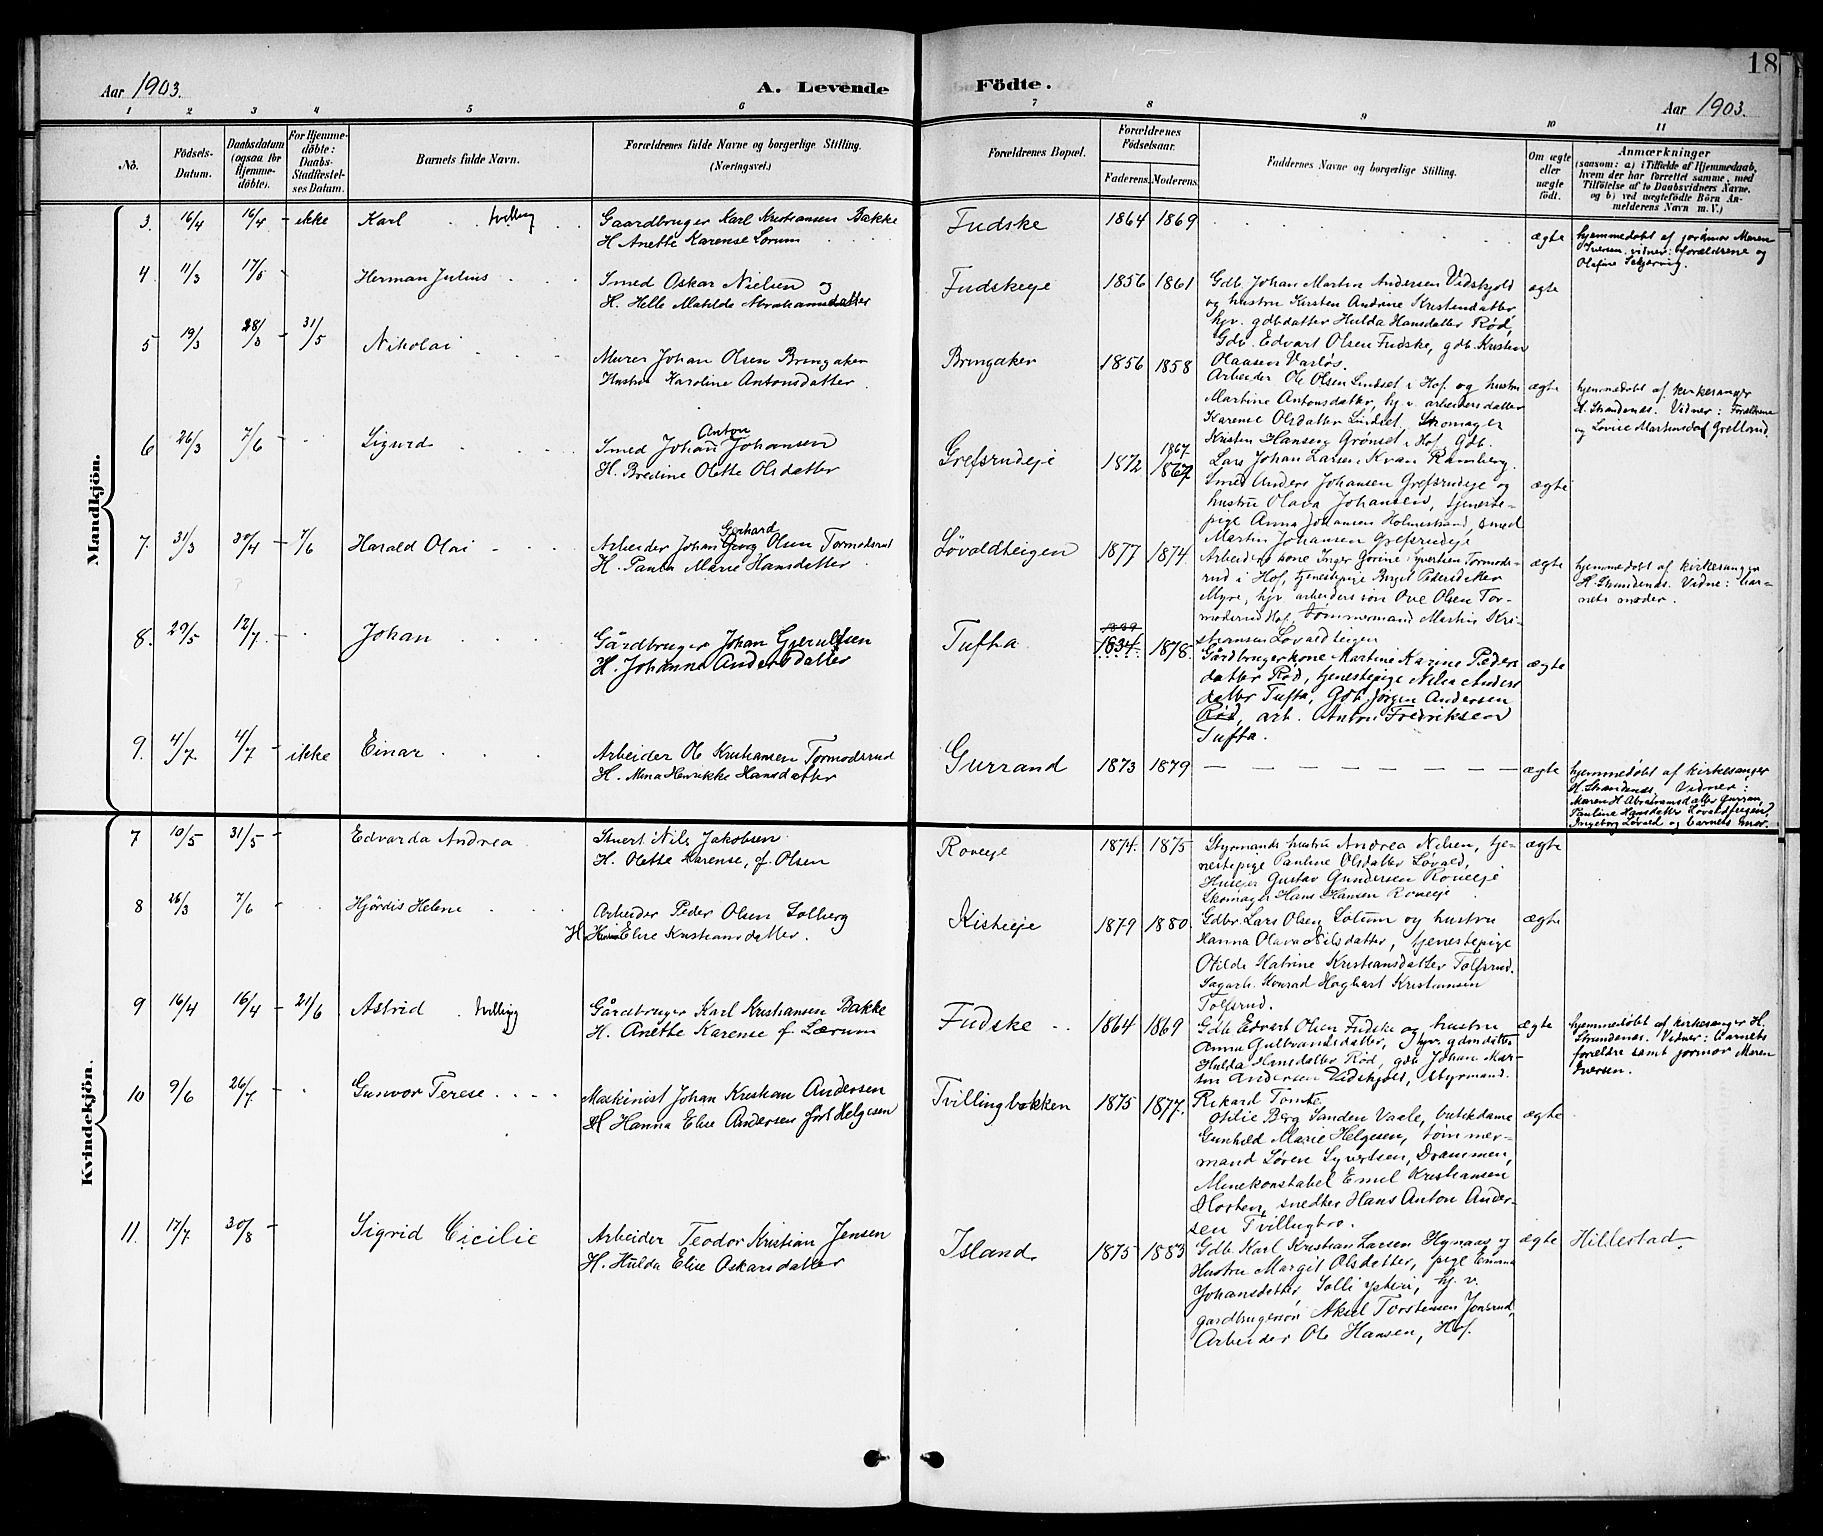 18
Aar 1903.
A. Levende
Födte.
Aar 1903.
1 2 3 4 5 6 7 8 9 10 11
Nō.
Födsels-
Datum.
Daabsdatum
(ogsaa for
Hjemme-
döbte).
For Hjemme-
döbte:
Daabs-
Stadfæstel-
ses Datum.
Barnets fulde Navn.
Forældrenes fulde Navne og borgerlige Stilling.
(Næringsvei.)
Forældrenes Bopæl.
Forældrenes
Födselsaar.
Faderens. Moderens.
Faddernes Navne og borgerlige Stilling.
Om ægte
eller
uægte
født.
Anmærkninger
(saasom: a) i Tilfælde af Hjemmedaab,
hvem der har forrettet samme, med
Tilföielse af to Daabsvidners Navne.
og b) ved uægtefödte Börn An-
melderens Navn m. V.)
Mandkjön.
3. 16/4 16/4 - ikke Karl tvilling
Gaardbruger Karl Kristiansen Bakke
H. Anette Karense Lørum
Fudske 1864 1869
ægte
hjemmedøbt af jordmor Maren
Iversen. vidner: forældrene og
Olefine
4 11/3 17/5 - Herman Julius
Smed Oskar Nielsen og
H. Helle Matilde Abrahamsdatter
Fudskeeje 1856 1861
Gdb. Johan Martin Andersen Vidskjold
og hustru Kirsten Andrine Kristendatter
hjv. gdbdatter Hulda Hansdatter Rød,
Gdb. Edvart Olsen Fudske, gdb. Kristen
Olaasen Vasløs.
ægte
5 19/3 28/3 - 31/5 Nikolai
Murer Johan Olsen Bringaker
Hustru Karoline Antonsdatter
Bringaker 1856 1858
Arbeider Ole Olsen Lindset i Hof og hustru
Martine Antonsdatter, hj v. arbeidersdatter
Karense Olsdatter Lindset, Skomager
Kristen Hansen Grønset i Hof, Gdb.
Lars Johan Larsen Kvan Ramberg.
ægte
hjemmedøbt af kirkesanger
H. Strandenæs. Vidner: Forældrene
og Lovise Martinsdat Grelland.
6 26/3 7/6 - Sigurd
Smed Johan Anton Johansen
H. Bredine Olette Olsdatter
Grefsrudeje 1872 1867. 1867
Smed Anders Johansen Grefsrudeje og
hustru Olava Johansen, tjeneste-
pige Anna Johansen Holmestrand, smed
Martin Johansen Grefsrudeje
ægte
7. 31/3 30/4 - 7/6 Harald Olai
Arbeider Johan Georg Gerhard Olsen Tormodsrud
H. Paula Marie Hansdatter
Løvaldteigen 1877 1874.
Arbeiders kone Inger Gorine Syvertsen Tormods-
rud i Hof, tjenestepige Birgit Pedersdatter
Myre, hjv. arbeiders søn Ove Olsen Tor-
modsrud Hof, tømmermand Martin Kri-
stiansen Løvaldteigen
ægte
hjemmedøbt af kirkesanger
H. Strandenæs. Vidne: bar-
nets moder.
8. 29/5 12/7 - Johan
Gårdbruger Johan Gjerulfsen
H. Johanne Andersdatter
Tufta 1839 1834. 1878.
Gårdbrugerkone Martine Karine Peders
datter Rød, tjenestepige Nilia Anders
datter Tufta, Gdb. Jørgen Andersen
Rød, arb. Anton Fredriksen
Tufta.
ægte
9. 4/7 4/7 - ikke Einar
Arbeider Ole Kristiansen Tormodsrud
H. Mina Henrikke Hansdatter
Gurrand 1873 1879
ægte
hjemmedøbt af kirkesanger
H. Strandenæs, Vidner:
Maren H Abrahamsdatter Gurran,
Pauline Hansdatter Løvaldteigen,
Ingeborg Løvald og barnets mor.
Kvindekjön.
7 10/5 31/5 - Edvarda Andrea
Stuert Nils Jakobsen
H. Olette Karense, f. Olsen
Roveeje 1874. 1875
Styrmands hustru Andrea Nilsen, tje-
nestepige Pauline Olsdatter Løvald,
Huseier Gustav Gundersen Roveeje
Skomager Hans Hansen Roveeje
ægte
8 26/3 7/6 Hjørdis Helene
Arbeider Peder Olsen Solberg
H. Elise Kristiansdatter.
Kisteeje 1879 1880.
Gdbr. Lars Olsen Solum og hustru
Hanna Olava Nilsdatter, tjenestepige
Otilde Katrine Kristiansdatter Tolfsrud.
Sagarb. Konrad Haghart Kristiansen
Tolfsrud.
ægte
9 16/4 16/4 - 21/6 Astrid tvilling
Gårdbruger Karl Kristiansen Bakke
H. Anette Karense f. Lærum
Fudske 1864 1869
Gdb. Edvart Olsen Fudske og hustru
Anna Gulbrandsdatter, hjv. gdmdatter
Hulda Hansdatter Rød, gdb. Johan Mar-
tin Andersen Vidskjold, styrmand.
Rikard Tomte
ægte
hjemmedøbt af kirkesanger H.
Strandenæs. Vidner: barnets
forældre samt jormor Maren
Iversen.
10 9/6 26/7 Gunvor Terese
Maskinist Johan Kristian Andersen
H Hanna Elise Andersen født Helgesen
Tvillingbakken 1875 1877.
Otilie Berg Sanden Vaale, butikdame
Gunhild Marie Helgesen, tømmer-
mand Søren Syvertsen, Drammen,
Minekonstabel Emil Kristiansen
Horten, snedker Hans Anton Ander-
sen Tvillingbro.
ægte
11. 17/7 30/8 - Sigrid Cicilie
Arbeider Teodor Kristian Jensen
H. Hulda Elise Oskarsdatter
Island 1875 1883
Gdb. Karl Kristian Larsen Hynaas og
Hustru Margit Olsdatter, pige Emma
Johansdatter, Solli ysteri, hj. v.
gardbrugersøn Aksel Torstensen Jonsrud,
Arbeider Ole Hansen, Hof.
ægte
Hillestad.